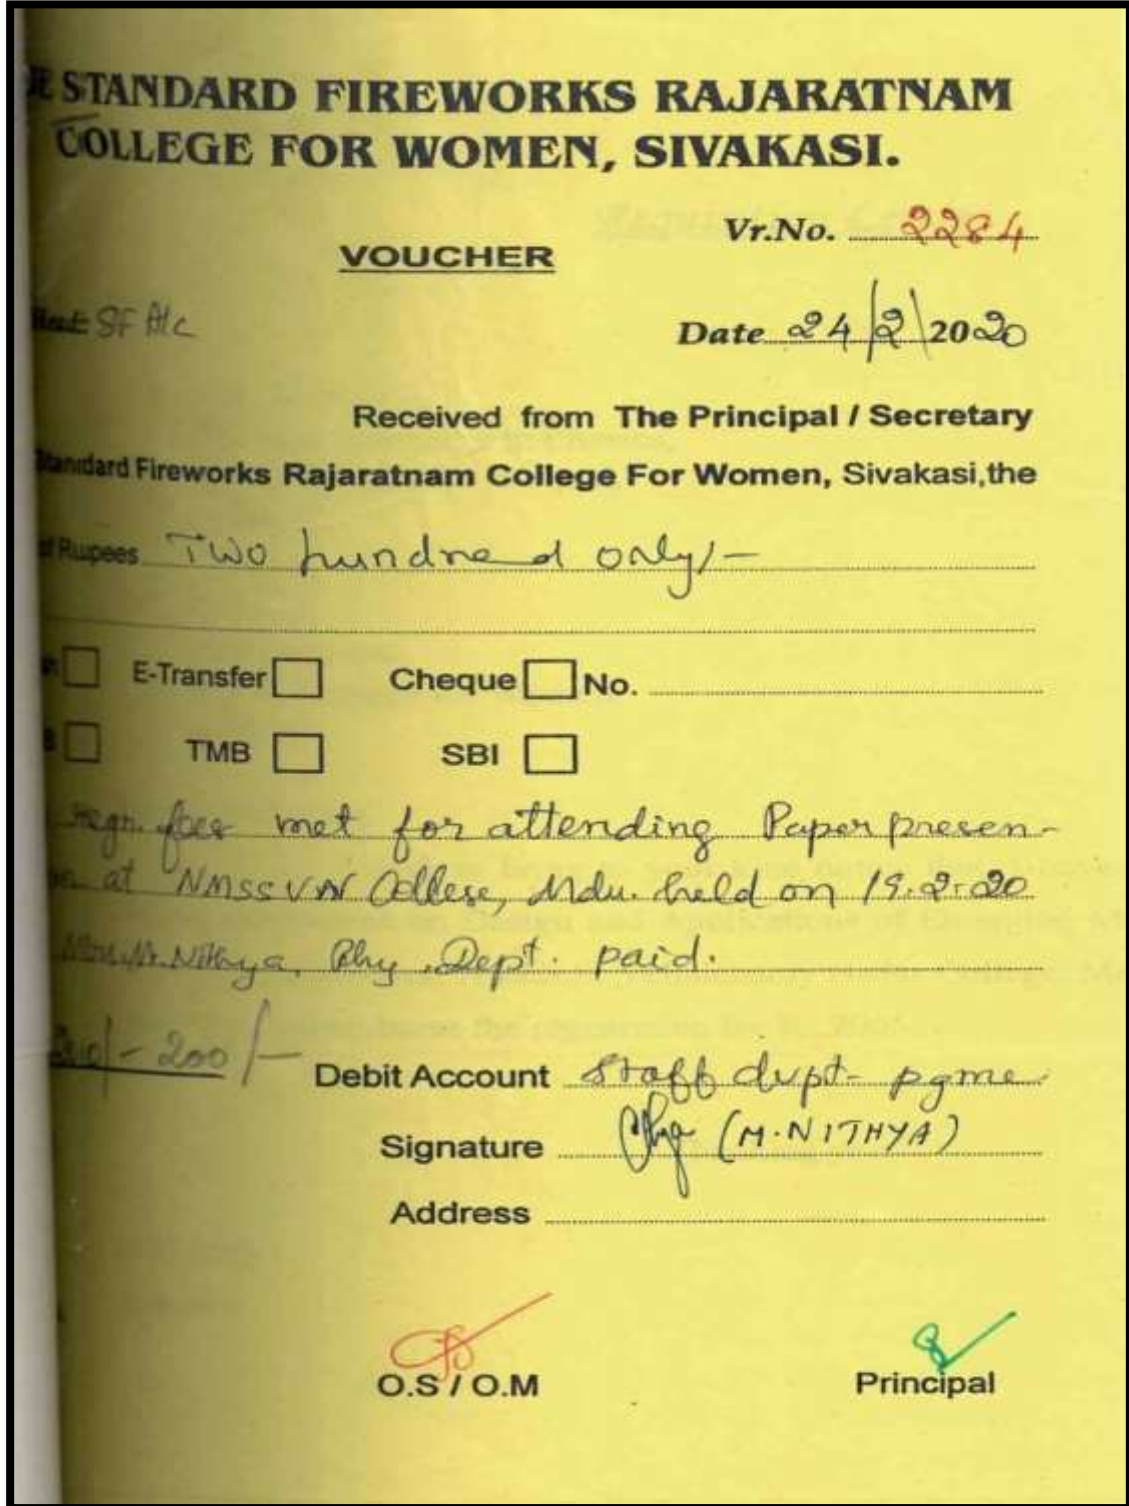 E STANDARD FIREWORKS RAJARATNAM
COLLEGE FOR WOMEN, SIVAKASI.
Vr.No. 2284
VOUCHER
SF A/c
Date 24/2/2020
Received from The Principal / Secretary
Standard Fireworks Rajaratnam College For Women, Sivakasi, the
of Rupees Two hundred only/-
E-Transfer Cheque No.
TMB SBI
regn. fees met for attending Paper presen-
at NMSSVN College, Mdu. held on 19.2.20
M. Nithya, Phy. Dept. paid.
200/-
Debit Account Staff dvpt- pgme
Signature (M.NITHYA)
Address
O.S / O.M Principal